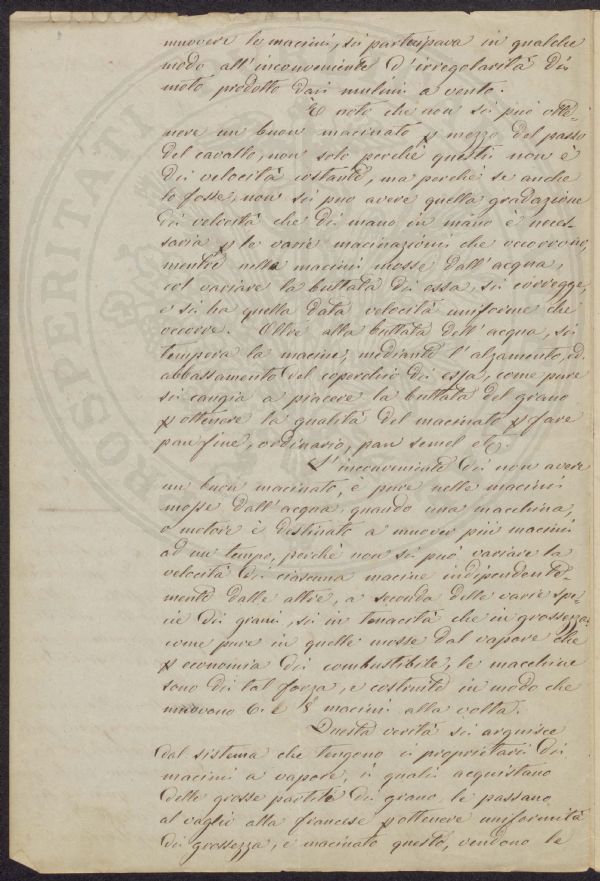 muovere le macini, si partecipava in qualche
modo all'inconveniente d'irregolarità di
moto prodotto dai mulini a vento.
E noto che non si può otte-
nere un buon macinato p mezzo del passo
del cavallo, non solo perchè questi non è
di velocità costante, ma perchè se anche
lo fosse, non si può avere quella gradazione
di velocità che di mano in mano è neces-
saria p le varie macinazioni che occorrono,
mentre nelle macini mosse dall'acqua,
col variare la buttata di essa, si corregge
e si ha quella data velocità uniforme che
occorre. Oltre alla buttata dell'acqua, si
tempera la macine, mediante l'alzamento, ed
abbassamento del coperchio di essa, come pure
si cangia a piacere la buttata del grano
p ottenere la qualità del macinato p fare
pan fine, ordinario, pan semel etc.
L'inconveniente di non avere
un buon macinato, è pure nelle macini
mosse dall'acqua quando una macchina,
o motore è destinato a muover più macini
ad un tempo, perchè non si può variare la
velocità di ciascuna macine indipendente-
mente dalle altre, a seconda delle varie spe-
cie di grani, sì in tenacità che in grossezza:
come pure in quelle mosse dal vapore che
p economia di combustibile, le macchine
sono di tal forza, e costruite in modo che
muovono 6. e 8 macini alla volta.
Questa verità si arguisce
dal sistema che tengono i proprietarii di
macini a vapore, i quali acquistano
delle grosse partite di grano, le passano
al vaglio alla francese p ottenere uniformità
di grossezza, e macinato questo, vendono le
PROSPERITAT